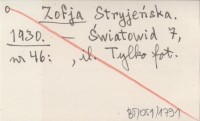 Zofja Stryjeńska.
1930. — Światowid 7,
nr 46: , il. Tylko fot.